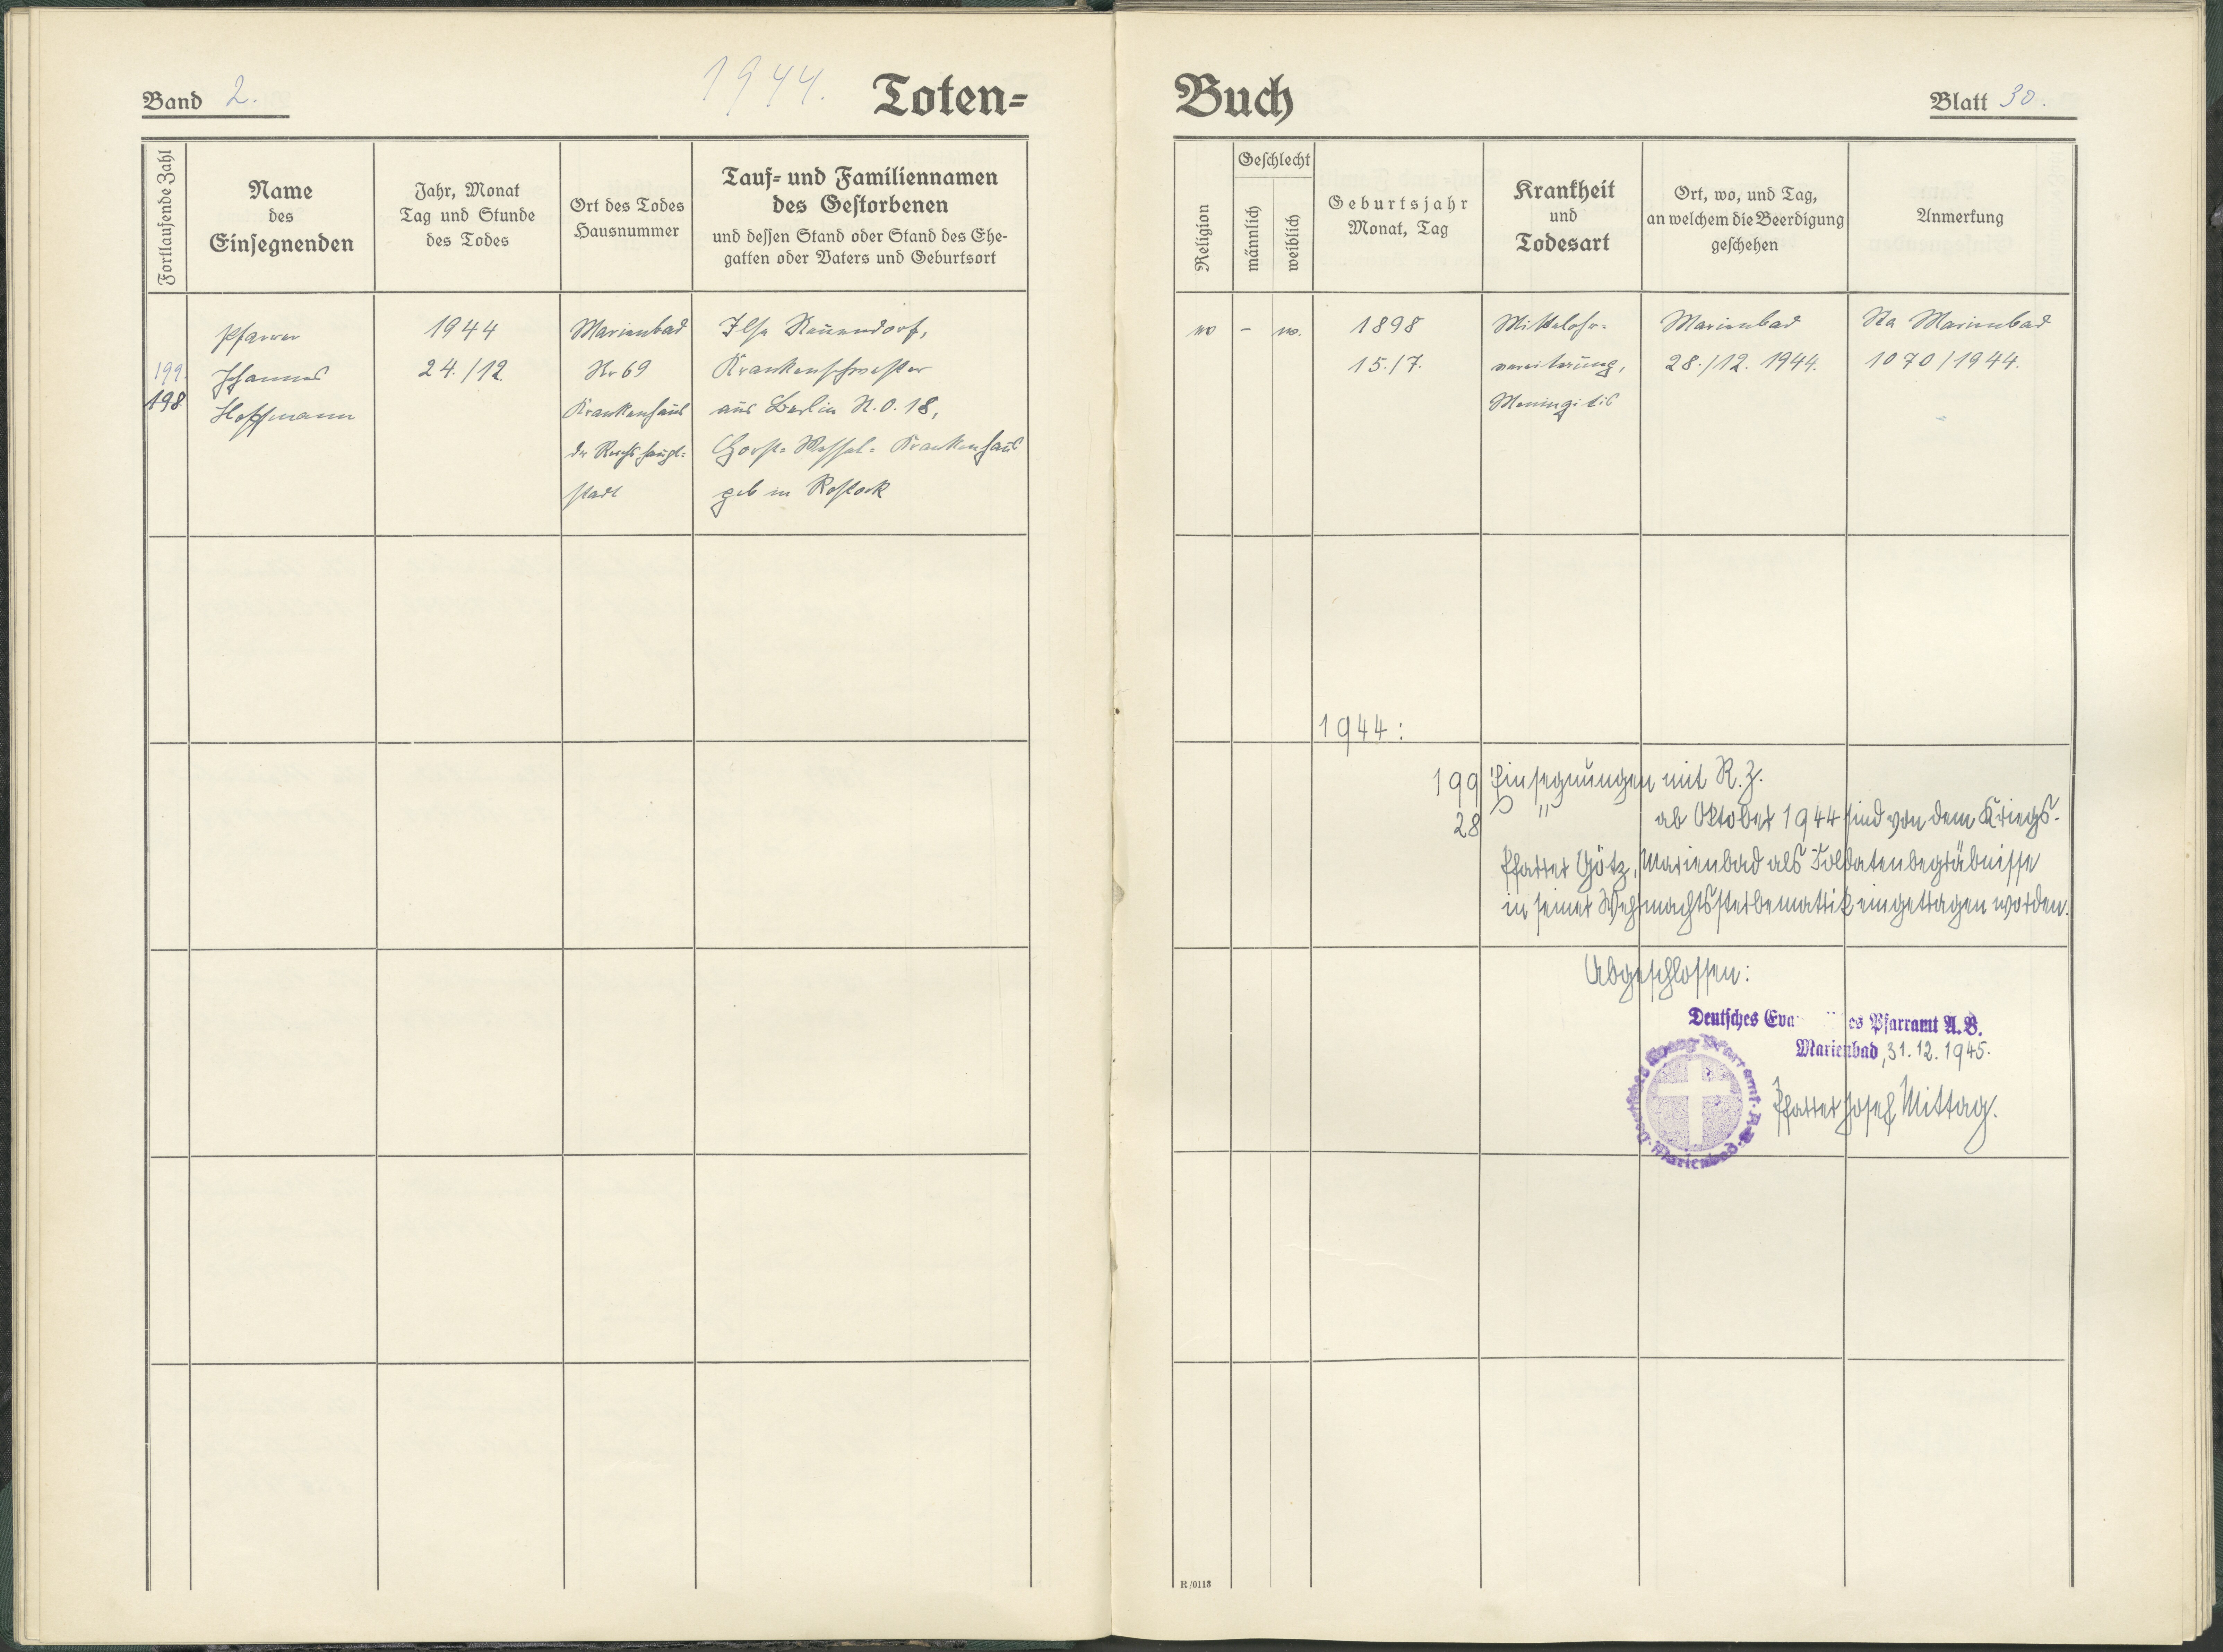 Band 2.
1944.
Toten-
Buch
Blatt 30.
Fortlaufende Zahl
Name
des
Einsegnenden
Jahr, Monat
Tag und Stunde
des Todes
Ort des Todes
Hausnummer
Tauf- und Familiennamen
des Gestorbenen
und dessen Stand oder Stand des Ehe-
gatten oder Vaters und Geburtsort
Religion
Geschlecht
männlich
weiblich
Geburtsjahr
Monat, Tag
Krankheit
und
Todesart
Ort, wo, und Tag,
an welchem die Beerdigung
geschehen
Anmerkung
199.
198
Pfarrer
Johannes
Hoffmann
1944
24./12.
Marienbad
Nr 69
Krankenhaus
der Reichshaupt-
stadt
Ilse
Krankenschwester
aus Berlin N.O. 18,
Horst-Wessel-Krankenhaus
geb in Rostock
-
w.
1898
15./7.
Mittelohr-
vereiterung,
Meningitis
Marienbad
28./12. 1944.
Sta Marienbad
1070/1944.
1944:
199 Einsegnungen mit R.Z.
28 " ab Oktober 1944 sind von dem Kriegs-
Pfarrer Götz, Marienbad als Soldatenbegräbnisse
in seiner Wehrmachtssterbematrik eingetragen worden.
Abgeschlossen:
Deutsches Eva es Pfarramt A.B.
Marienbad, 31.12.1945.
Pfarrer Josef Mittag.
Deutsches Evang Pfarramt A.B. Marienbad
R/0113